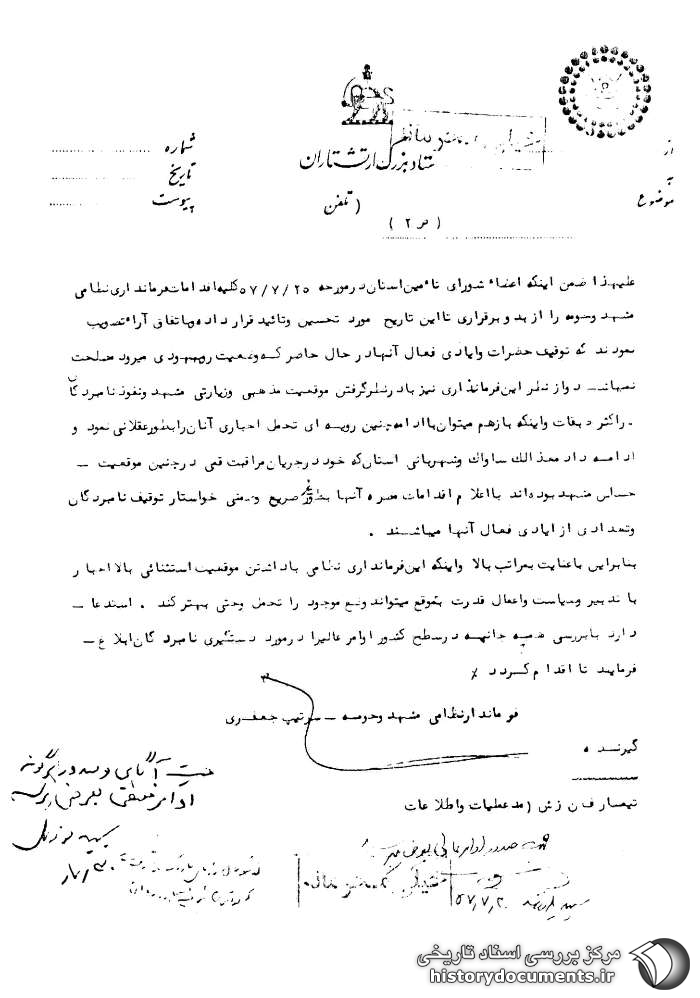 خیلی محرمانه
از
ستاد بزرگ ارتشتاران
شماره
به
تاریخ
موضوع
( تلفن
پیوست
( ص ۲ )
علیهذا ضمن اینکه اعضاء شورای تامین استان در مورخه ۵۷/۷/۲۵ کلیه اقدامات فرمانداری نظامی
مشهد و حومه را از بدو برقراری تا این تاریخ مورد تحسین و تائید قرار داده و باتفاق آراء تصویب
نمودند که توقیف حضرات و ایادی فعال آنها در حال حاضر که وضعیت رو ببهبودی میرود مصلحت
نمیباشد و از نظر این فرمانداری نیز با در نظر گرفتن موقعیت مذهبی و زیارتی مشهد و نفوذ نامبردگان
در اکثر طبقات و اینکه باز هم میتوان با ادامه چنین رویه ای تحمل اجباری آنان را بطور عقلانی نمود و
ادامه داد معذالک ساواک و شهربانی استان که خود در جریان مراقبت قمی در چنین موقعیت –
حساس مشهد بوده اند با اعلام اقدامات مضره آنها بطور غیر صریح و ضمنی خواستار توقیف نامبردگان
و تعدادی از ایادی فعال آنها میباشند .
بنابراین با عنایت بمراتب بالا و اینکه این فرمانداری نظامی با داشتن موقعیت استثنائی بالا اجبار
با تدبیر و سیاست و اعمال قدرت بموقع میتواند وضع موجود را تحمل و حتی بهتر کند . استدعا –
دارد با بررسی همه جانبه در سطح کشور اوامر عالی را در مورد دستگیری نامبردگان ابلاغ –
فرمایند تا اقدام گردد ٪
فرماندار نظامی مشهد و حومه – سرتیپ جعفری
گیرنده
تیمسار
عملیات و اطلاعات
جهت صدور اوامر عالی بعرض میرسد
خیلی محرمانه
مرکز بررسی اسناد تاریخی
historydocuments.ir